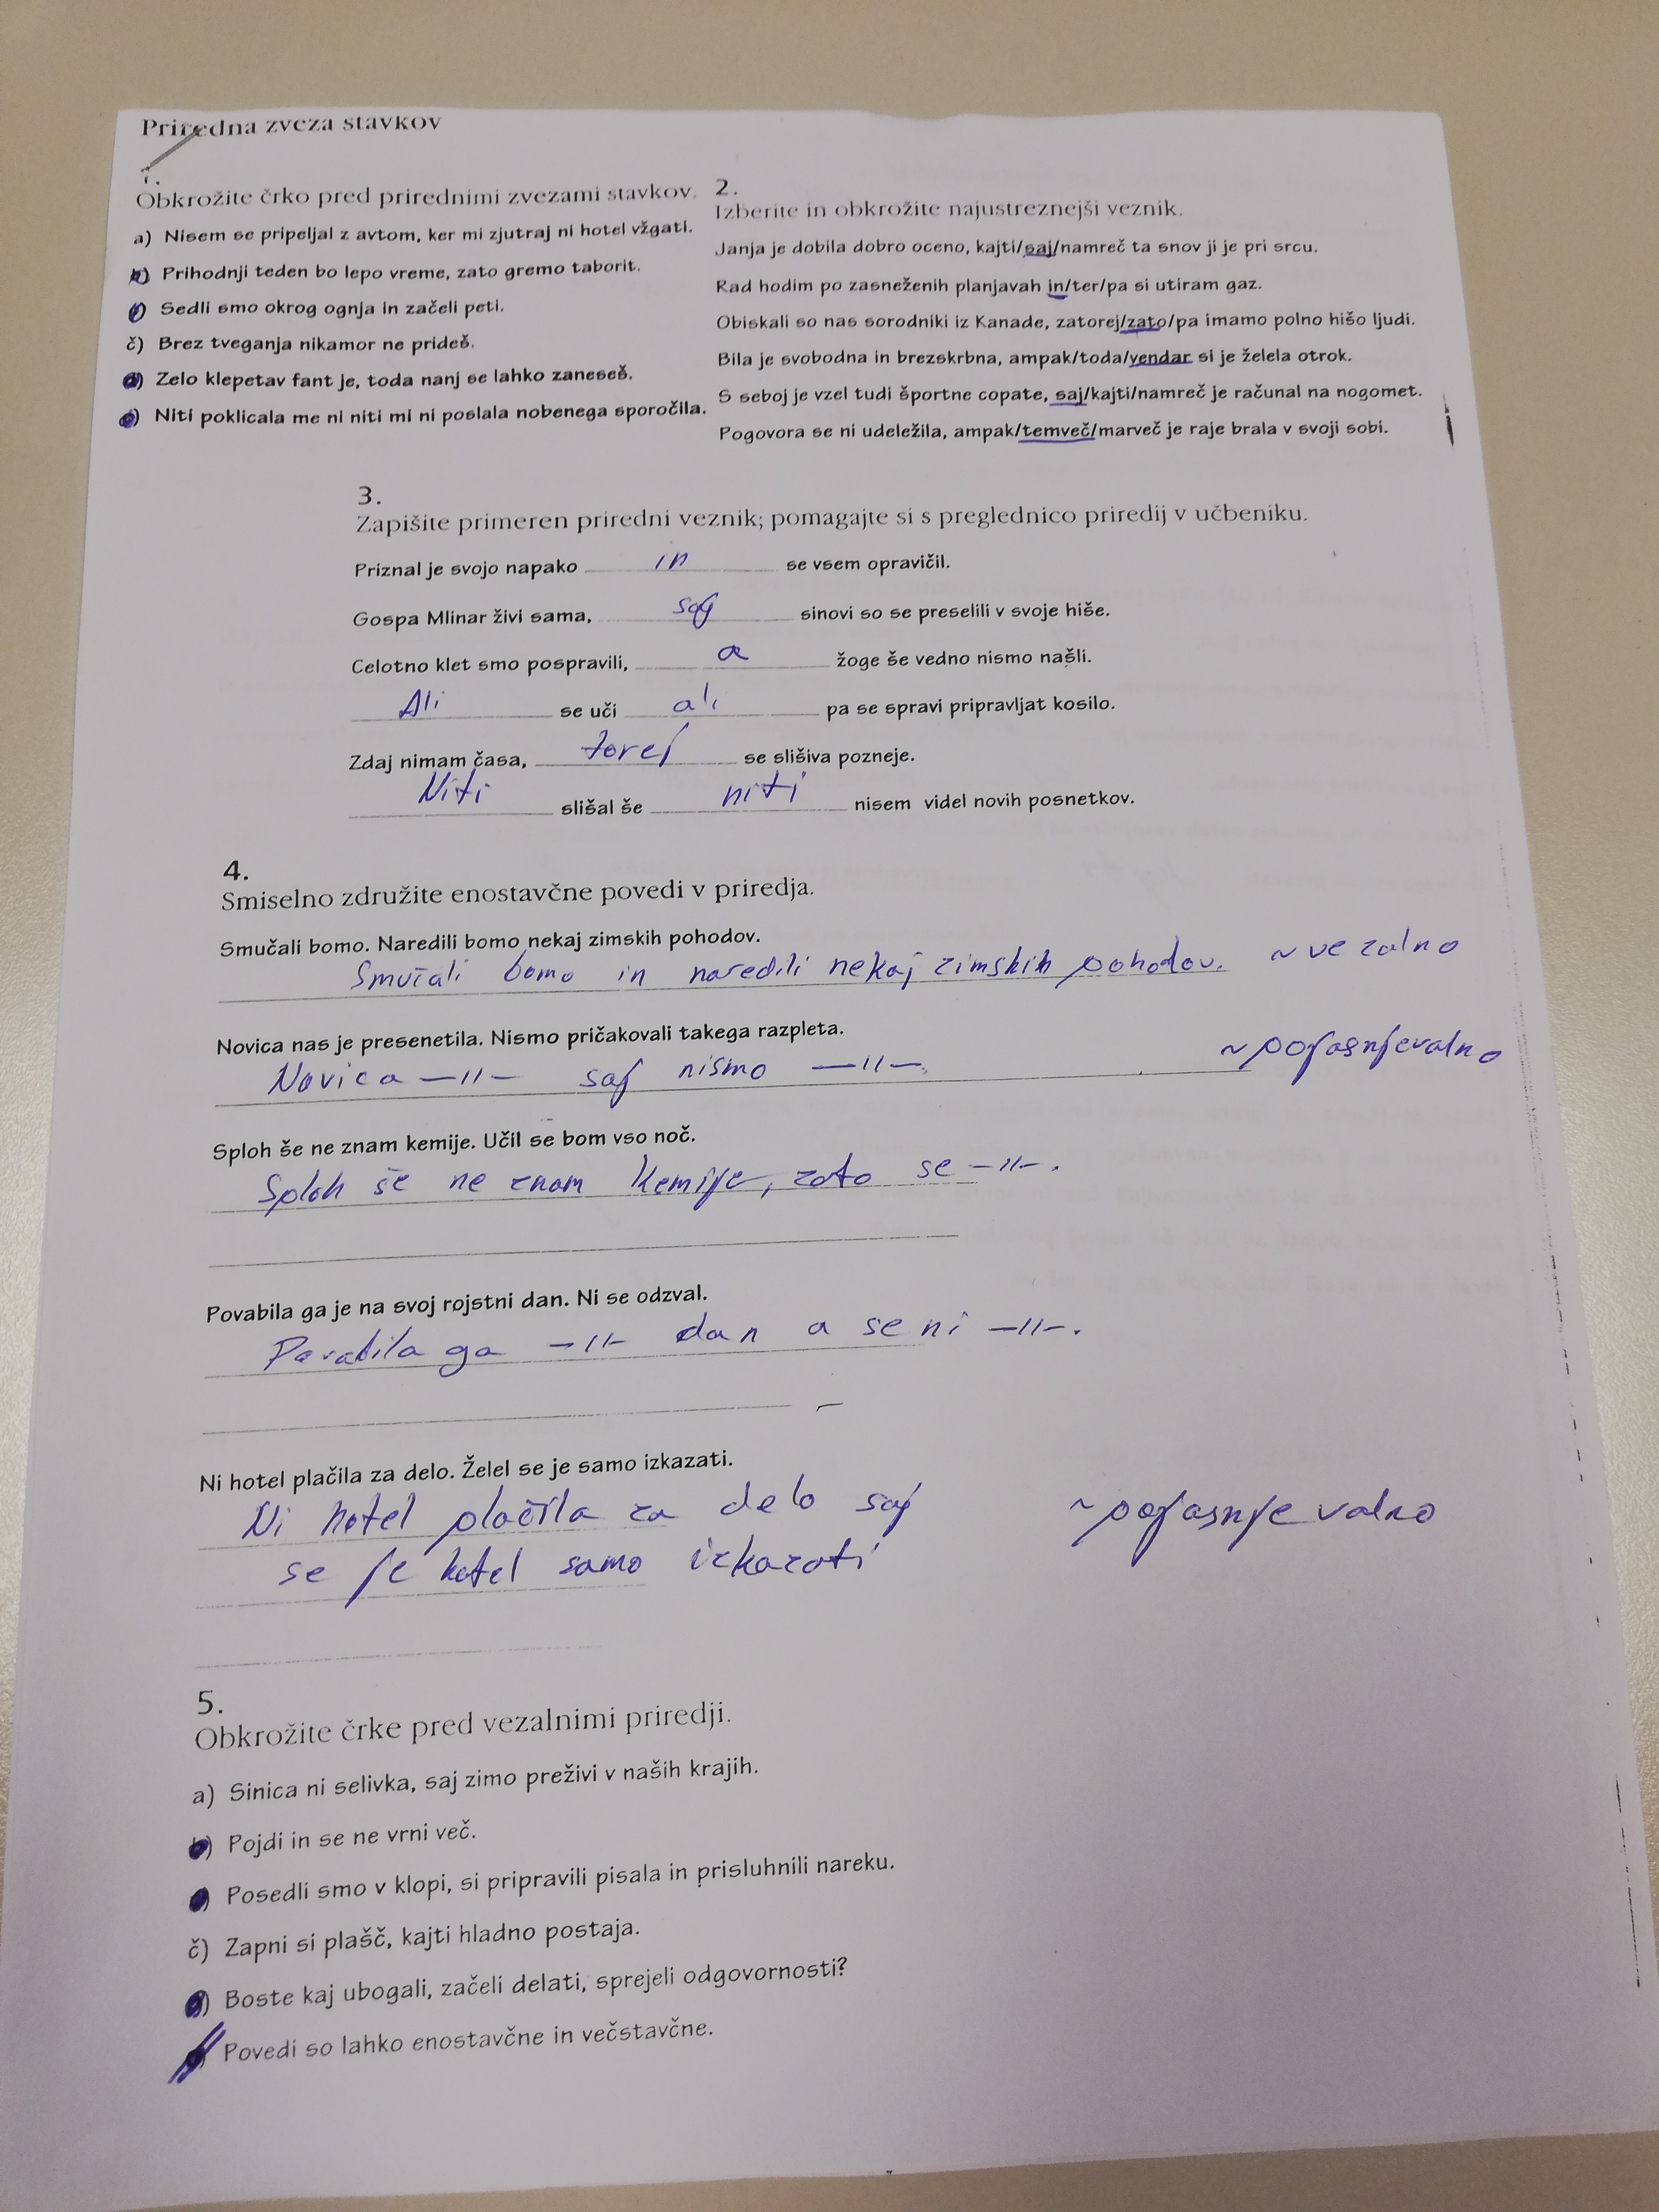 Priredna zveza stavkov
1.
Obkrožite črko pred prirednimi zvezami stavkov.
a) Nisem se pripeljal z avtom, ker mi zjutraj ni hotel vžgati.
b) Prihodnji teden bo lepo vreme, zato gremo taborit.
c) Sedli smo okrog ognja in začeli peti.
č) Brez tveganja nikamor ne prideš.
d) Zelo klepetav fant je, toda nanj se lahko zaneseš.
e) Niti poklicala me ni niti mi ni poslala nobenega sporočila.
2.
Izberite in obkrožite najustreznejši veznik.
Janja je dobila dobro oceno, kajti/saj/namreč ta snov ji je pri srcu.
Rad hodim po zasneženih planjavah in/ter/pa si utiram gaz.
Obiskali so nas sorodniki iz Kanade, zatorej/zato/pa imamo polno hišo ljudi.
Bila je svobodna in brezskrbna, ampak/toda/vendar si je želela otrok.
S seboj je vzel tudi športne copate, saj/kajti/namreč je računal na nogomet.
Pogovora se ni udeležila, ampak/temveč/marveč je raje brala v svoji sobi.
3.
Zapišite primeren priredni veznik; pomagajte si s preglednico priredij v učbeniku.
Priznal je svojo napako in se vsem opravičil.
Gospa Mlinar živi sama, saj sinovi so se preselili v svoje hiše.
Celotno klet smo pospravili, a žoge še vedno nismo našli.
Ali se uči ali pa se spravi pripravljat kosilo.
Zdaj nimam časa, torej se slišiva pozneje.
Niti slišal še niti nisem videl novih posnetkov.
4.
Smiselno združite enostavčne povedi v priredja.
Smučali bomo. Naredili bomo nekaj zimskih pohodov.
Smučali bomo in naredili nekaj zimskih pohodov. ~ vezalno
Novica nas je presenetila. Nismo pričakovali takega razpleta.
Novica —||— saj nismo —||—. ~ pojasnjevalno
Sploh še ne znam kemije. Učil se bom vso noč.
Sploh še ne znam kemije, zato se —||—.
Povabila ga je na svoj rojstni dan. Ni se odzval.
Povabila ga —||— dan a se ni —||—.
Ni hotel plačila za delo. Želel se je samo izkazati.
Ni hotel plačila za delo saj ~ pojasnjevalno
se je hotel samo izkazati
5.
Obkrožite črke pred vezalnimi priredji.
a) Sinica ni selivka, saj zimo preživi v naših krajih.
b) Pojdi in se ne vrni več.
c) Posedli smo v klopi, si pripravili pisala in prisluhnili nareku.
č) Zapni si plašč, kajti hladno postaja.
d) Boste kaj ubogali, začeli delati, sprejeli odgovornosti?
e) Povedi so lahko enostavčne in večstavčne.